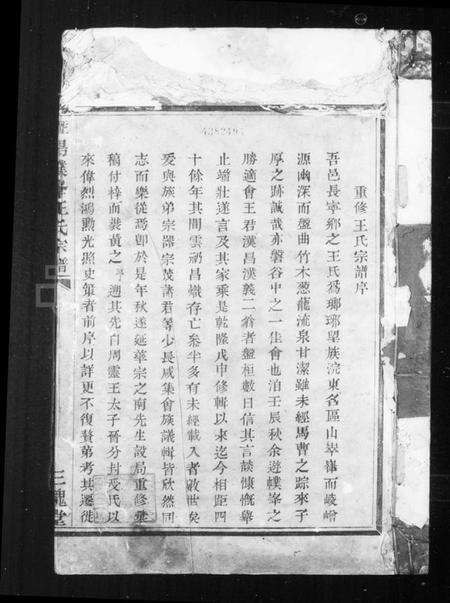 重修王氏宗譜序
吾邑長寧鄉之王氏爲瑯琊望族浣東名區山崒嵂而崚嶒
源幽深而盤曲竹木葱蘢流泉甘潔雖未經馬曹之踪來子
厚之跡誠哉亦磐谷中之一佳會也洎壬辰秋余遊轐峯之
勝適會王君漢昌漢義二翁者盤桓數日信其言談慷慨舉
止端壯遂言及其家乘是乾隆戊申修輯以來迄今相距四
十餘年其間雲礽昌熾存亡參半多有未經載入者敢世矣
爰與族弟宗器宗茂諸君等少長咸集會族議輯皆欣然同
志而樂從焉卽於是年秋遂延華宗之南先生設局重修彙
稿付梓而裝黃之 遡其先自周靈王太子晉分封受氏以
來偉烈鴻勳光照史策者前序以詳更不復贅第考其遷徙
陽 王氏宗譜
三槐堂
4382493